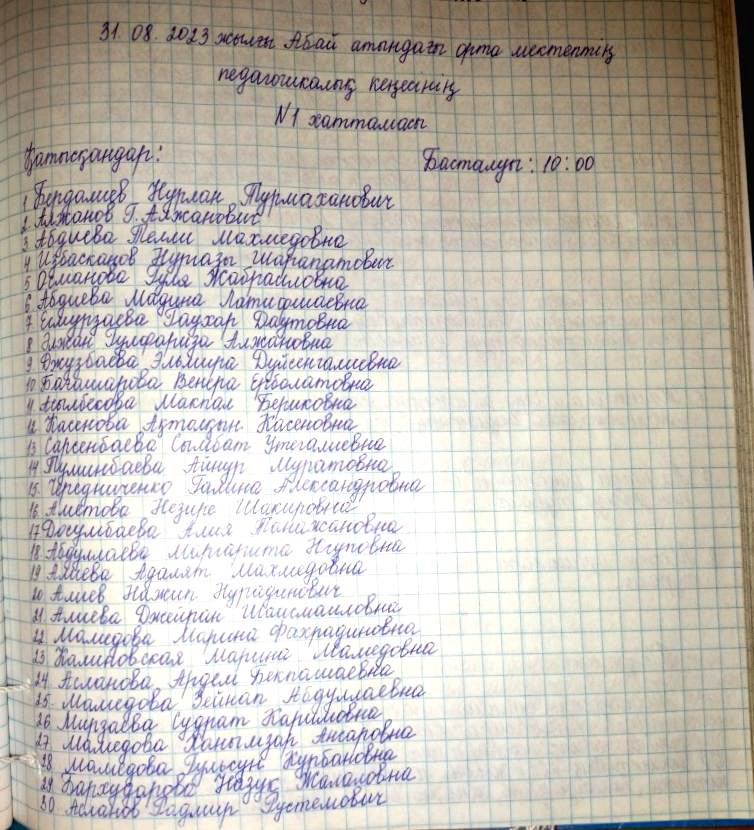 31. 08. 2023 жылғы Абай атындағы орта мектептің
педагогикалық кеңесінің
№1 хаттамасы
Қатысқандар: Басталуы: 10:00
1 Бердалиев Нурлан Турмаханович
2. Алжанов Г. Алжанович
3 Абдиева Телли Махмедовна
4 Избасканов Нургазы Шарапатович
5 Османова Гуля Жабраиловна
6 Абдиева Мадина Латифшаевна
7 Есмурзаева Гаухар Даутовна
8 Әлжан Гулфариза Алжановна
9 Джузбаева Эльмира Дуйсенгалиевна
10 Багашарова Венера Ерболатовна
11 Асылбекова Макпал Бериковна
12 Касенова Ақталқын Касеновна
13 Сарсенбаева Сымбат Утегалиевна
14 Туминбаева Айнур Муратовна
15. Чередниченко Галина Александровна
16 Аметова Незире Шакировна
17 Досумбаева Алия Танажановна
18 Абдуллаева Маргарита Нсуповна
19 Алиева Адалят Махмедовна
20 Алиев Нажип Нурадинович
21. Алиева Джейран Шаисмаиловна
22 Мамедова Марина Фахрадиновна
23. Калиновская Марина Мамедовна
24 Асланова Ардем Бекпашаевна
25. Мамедова Зейнап Абдуллаевна
26 Мирзаева Судрат Каримовна
27 Мамедова Ханымзар Ансаровна
28 Мамедова Гульсун Курбановна
29 Бархударова Назук Жалаловна
30 Асланов Бадмир Рустемович